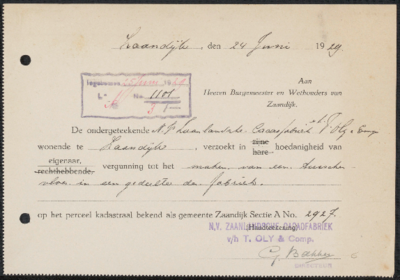 Zaandijk, den 24 Juni 1929
Aan
Heeren Burgemeester en Wethouders van
Zaandijk.
No. 1101
De ondergeteekende N.V. Zaanlandsche Cacaofabriek v/h T. Oly & Comp
wonende te Zaandijk, verzoekt in zijne
hare hoedanigheid van
eigenaar,
rechthebbende, vergunning tot het maken van een
vloer in een gedeelte der fabriek.
op het perceel kadastraal bekend als gemeente Zaandijk Sectie A No. 2927.
(Handteekening)
N.V. ZAANLANDSCHE CACAOFABRIEK
v/h T. OLY & Comp.
G Bakker